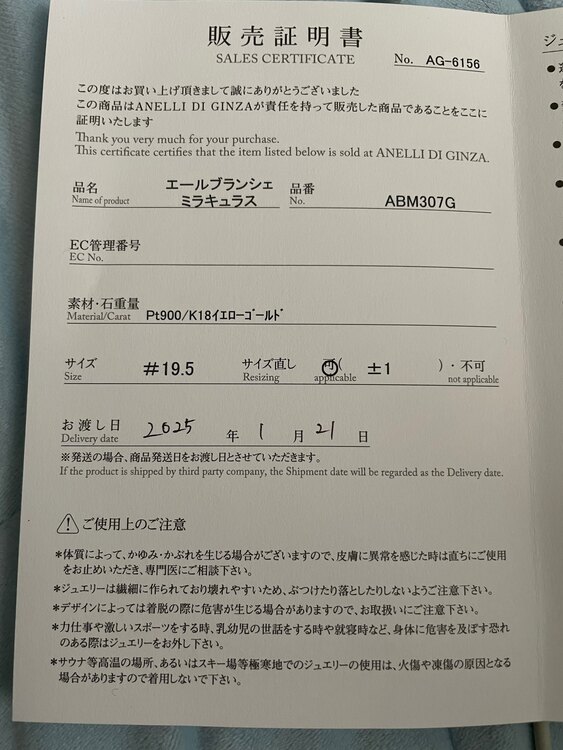 販売証明書
SALES CERTIFICATE
No. AG-6156
この度はお買い上げ頂きまして誠にありがとうございました
この商品はANELLI DI GINZAが責任を持って販売した商品であることをここに
証明いたします
Thank you very much for your purchase.
This certificate certifies that the item listed below is sold at ANELLI DI GINZA.
品名 エールブランシェ 品番
Name of product ミラキュラス No. ABM307G
EC管理番号
EC No.
素材・石重量
Material/Carat Pt900/K18イエローゴールド
サイズ #19.5 サイズ直し 可( ±1 )・不可
Size Resizing applicable not applicable
お渡し日 2025 年 1 月 21 日
Delivery date
※発送の場合、商品発送日をお渡し日とさせていただきます。
If the product is shipped by third party company, the Shipment date will be regarded as the Delivery date.
ご使用上のご注意
*体質によって、かゆみ・かぶれを生じる場合がございますので、皮膚に異常を感じた時は直ちにご使用
をお止めいただき、専門医にご相談下さい。
*ジュエリーは繊細に作られており壊れやすいため、ぶつけたり落としたりしないようご注意下さい。
*デザインによっては着脱の際に危害が生じる場合がありますので、お取扱いにご注意下さい。
*力仕事や激しいスポーツをする時、乳幼児の世話をする時や就寝時など、身体に危害を及ぼす恐れ
のある際はジュエリーをお外し下さい。
*サウナ等高温の場所、あるいはスキー場等極寒地でのジュエリーの使用は、火傷や凍傷の原因となる
場合がありますので着用しないで下さい。
ジュ